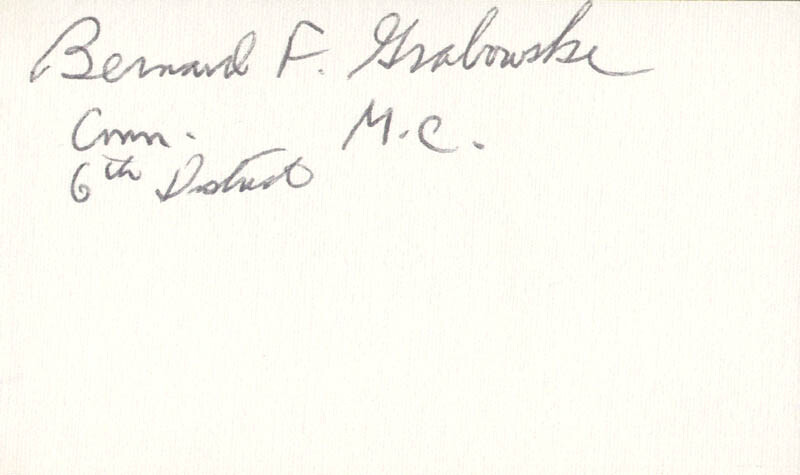 Bernard F. Grabowski
Conn. M.C.
6th District